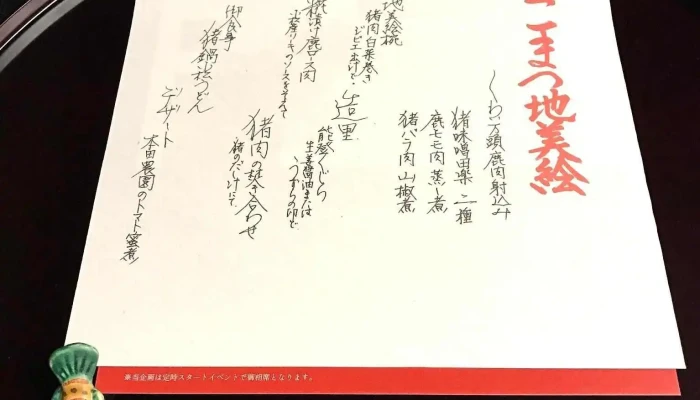 こまつ地美絵
くわい万頭鹿肉射込み
猪味噌田楽 二種
鹿モモ肉 蒸し煮
猪バラ肉 山椒煮
地美絵椀
猪肉白菜巻き
ジビエ出汁で
造里
能登くじら
生姜醤油または
うずらの卵で
糀漬け鹿ロース肉
猪肉の炊き合わせ
猪のだし汁にて
御食事
猪鍋小松うどん
デザート
本田農園のトマト蜜煮
※当企画は定時スタートイベントで御相席となります。